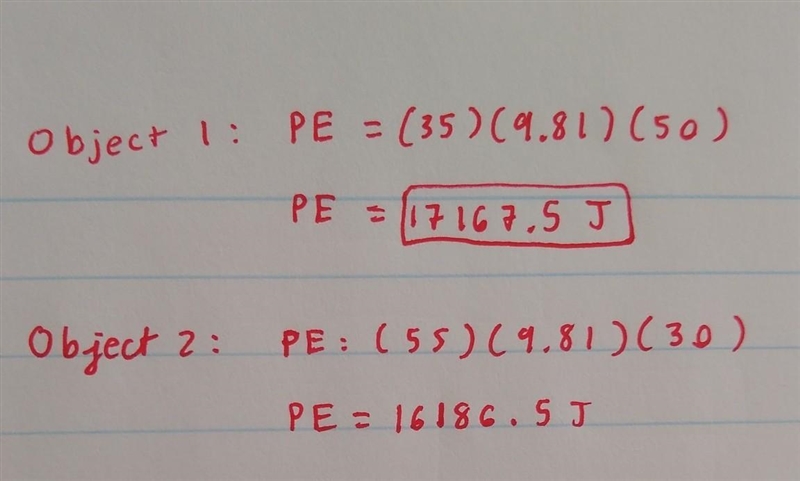 Object 1: PE = (35)(9.81)(50)
PE = 17167.5 J
Object 2: PE: (55)(9.81)(30)
PE = 16186.5 J